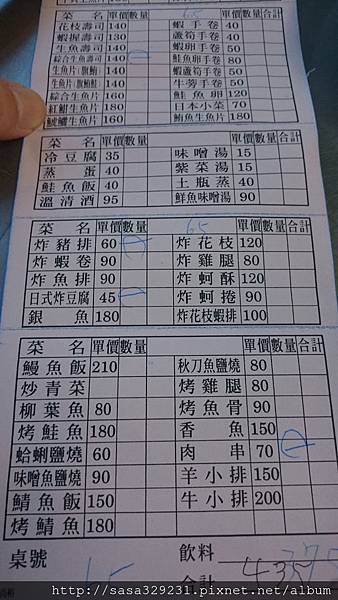 菜 名 單價 數量 65 合計
花枝壽司 140 蝦手卷 40
蝦握壽司 130 蘆筍手卷 40
生魚壽司 140 蝦卵手卷 50
綜合生魚壽司 140 鮭魚卵手卷 80
生魚片(旗鮪) 140 蝦蘆筍手卷 50
生魚片(旗魚) 140 牛蒡手卷 50
綜合生魚片 160 鮭魚卵 120
紅魽生魚片 180 日本小菜 70
生魚片 160 鮪魚生魚片 180
菜 名 單價 數量 合計
冷豆腐 35 味噌湯 15
蒸蛋 40 紫菜湯 15
鮭魚飯 40 土瓶蒸 40
溫清酒 95 鮮魚味噌湯 90
菜 名 單價 數量 65 合計
炸豬排 60 一 炸花枝 120
炸蝦卷 90 炸雞腿 80
炸魚排 90 炸蚵酥 120
日式炸豆腐 45 一 炸蚵捲 90
銀魚 180 炸花枝蝦排 100
菜 名 單價 數量 單價 數量 合計
鰻魚飯 210 秋刀魚鹽燒 80
炒青菜 烤雞腿 80
柳葉魚 80 烤魚骨 90
烤鮭魚 180 香魚 150
蛤蜊鹽燒 60 肉串 70 一
味噌魚鹽燒 90 羊小排 150
鯖魚飯 150 牛小排 200
烤鯖魚 180
桌號 65 飲料
合計 435
http://sasa329231.pixnet.net/album